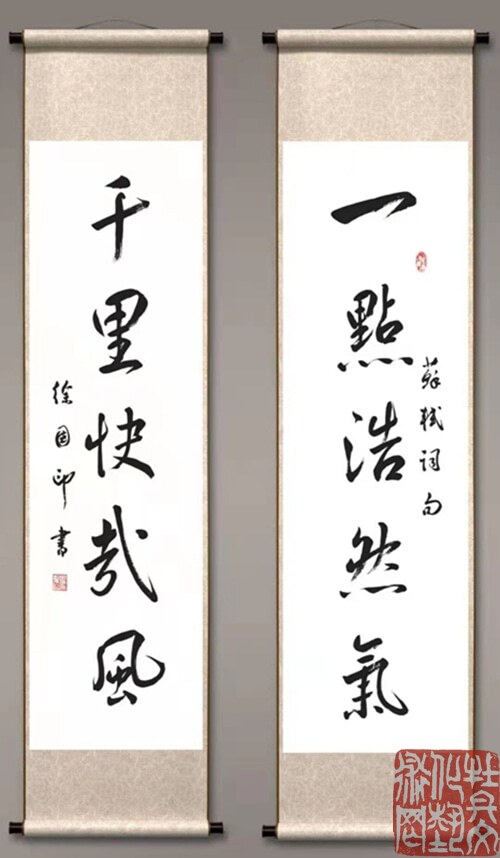 一點浩然氣
蘇軾詞句
千里快哉風
徐國印書